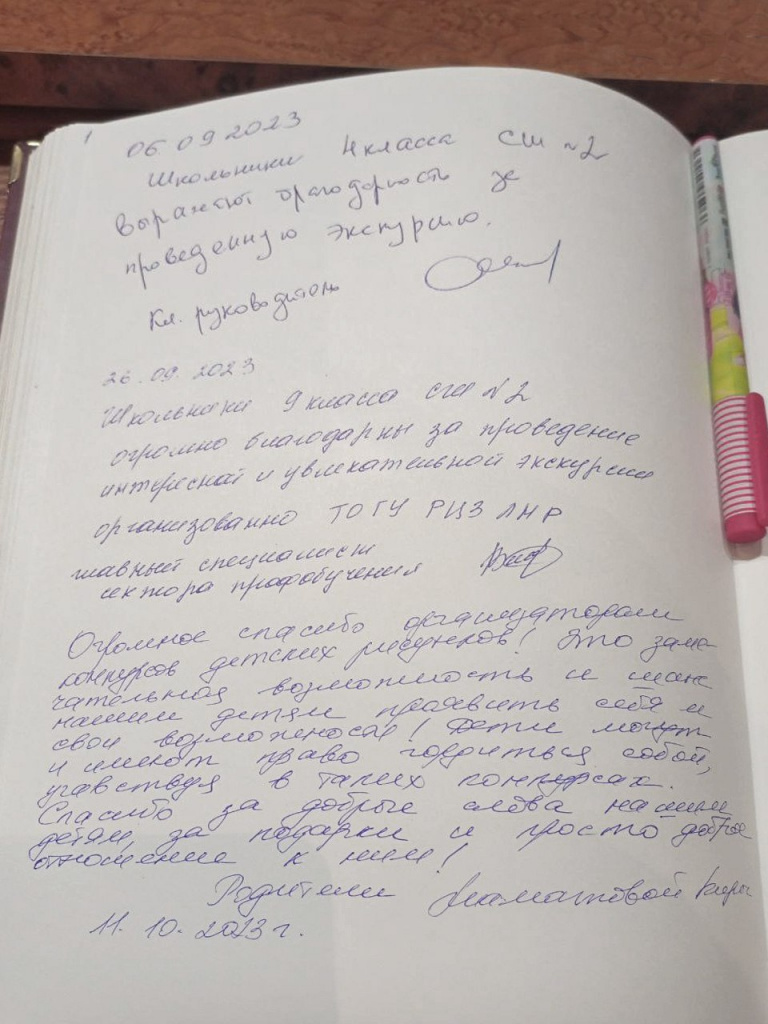 1
06 09 2023
Школьники 4 класса СШ №2
выражают благодарность за
проведенную экскурсию.
Кл. руководитель
26.09.2023
Школьники 9 класса СШ №2
огромно благодарны за проведение
интересной и увлекательной экскурсии
организованно ТОГУ РЦЗ ЛНР
главный специалист
сектора профобучения
Огромное спасибо организаторам
конкурсов детских рисунков! Это заме-
чательная возможность и шанс
нашим детям проявить себя и
свои возможности! Дети могут
и имеют право гордиться собой,
участвуя в таких конкурсах.
Спасибо за добрые слова нашим
детям за подарки и просто доброе
отношение к ним!
Родители Киры
11. 10. 2023 г.